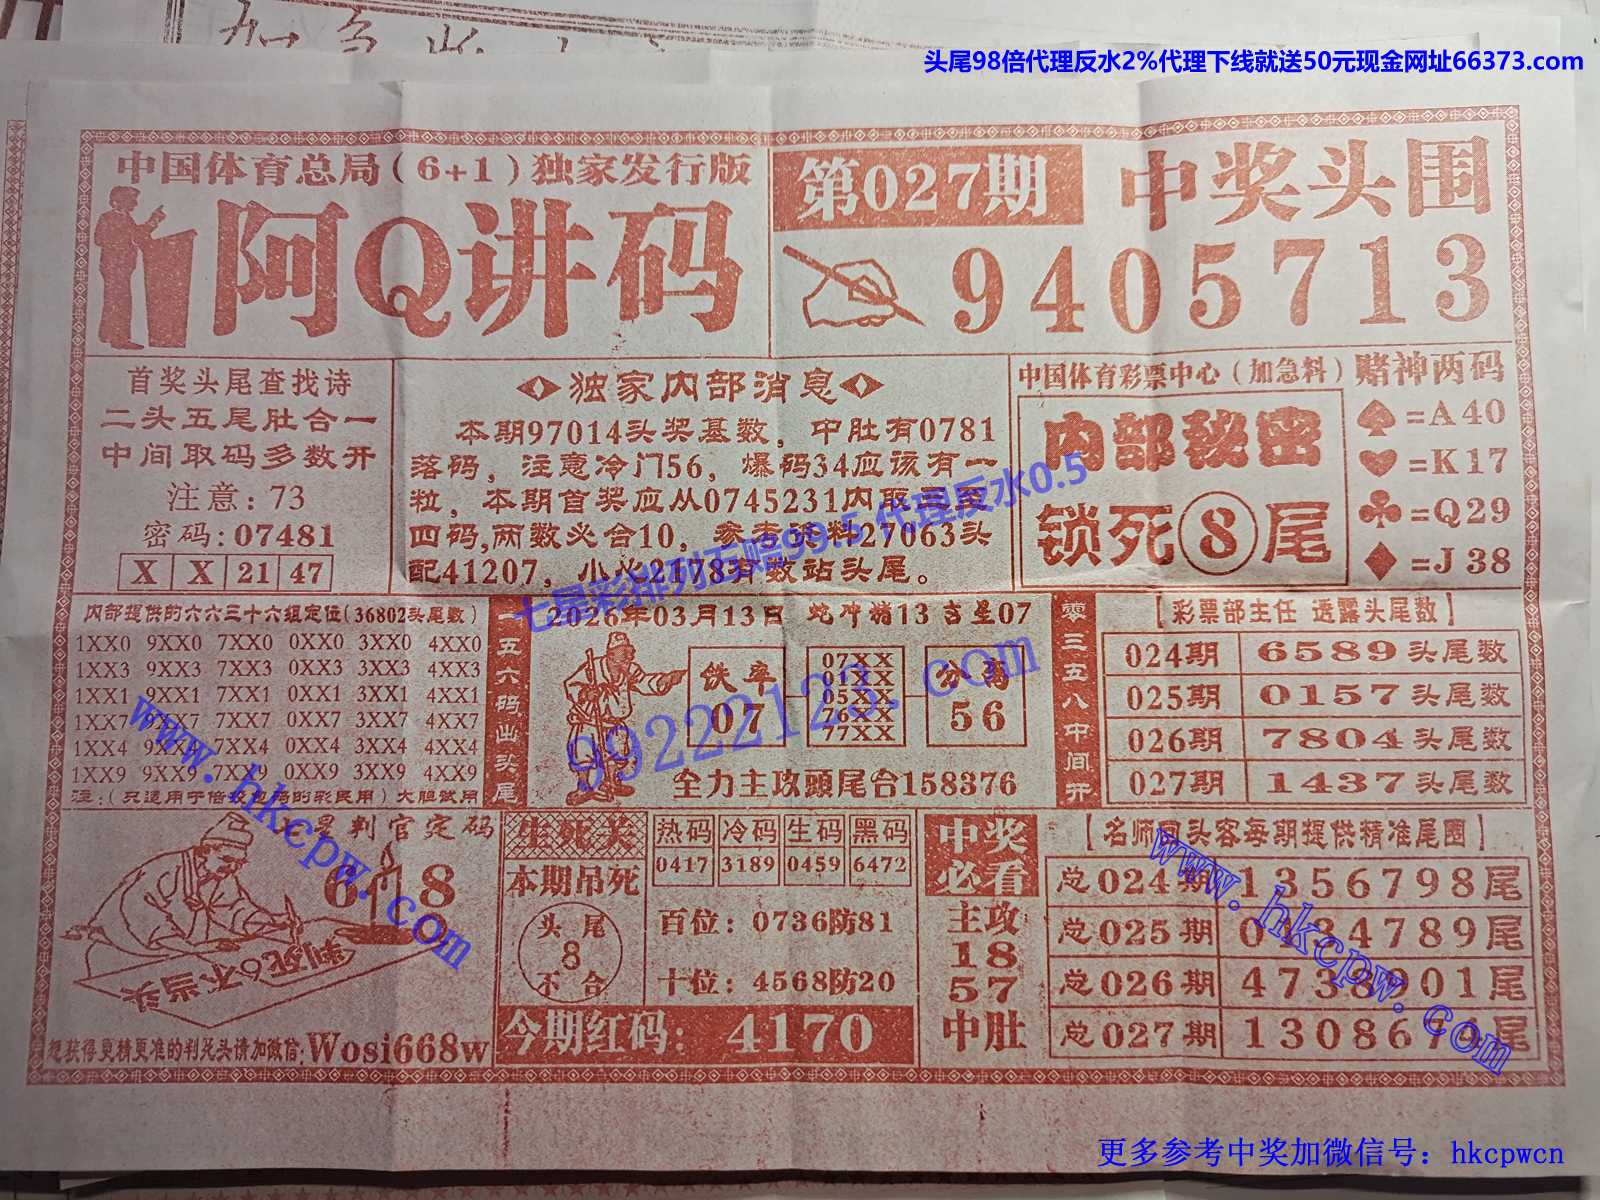 头尾98倍代理反水2%代理下线就送50元现金网址66373.com
中国体育总局(6+1)独家发行版
阿Q讲码
第027期 中奖头围
9405713
首奖头尾查找诗
二头五尾肚合一
中间取码多数开
注意: 73
密码: 07481
X X 21 47
独家内部消息
本期97014头奖基数, 中肚有0781
落码, 注意冷门56, 爆码34应该有一
粒, 本期首奖应从0745231内取三至
四码,两数必合10, 参考资料27063头
配41207, 小心2178有数站头尾。
中国体育彩票中心(加急料)
内部秘密
锁死⑧尾
赌神两码
♠=A40
♥=K17
♣=Q29
♦=J38
七星彩排列五赔99.5代理反水0.5
内部提供的六六三十六组定位(36802头尾数)
1XX0 9XX0 7XX0 0XX0 3XX0 4XX0
1XX3 9XX3 7XX3 0XX3 3XX3 4XX3
1XX1 9XX1 7XX1 0XX1 3XX1 4XX1
1XX7 9XX7 7XX7 0XX7 3XX7 4XX7
1XX4 9XX4 7XX4 0XX4 3XX4 4XX4
1XX9 9XX9 7XX9 0XX9 3XX9 4XX9
大胆试用
一五六码出头尾
2026年03月13日 蛇冲猪13 吉星07
铁率
07
07XX
01XX
05XX
76XX
77XX
公离
56
全力主攻頭尾合158376
99222123.com
零三五八中间开
【彩票部主任 透露头尾数】
024期 6589头尾数
025期 0157头尾数
026期 7804头尾数
027期 1437头尾数
星判官定码
6 8
判死6不当头
想获得更精更准的判死头请加微信:Wosi668w
www.hkcpw.com
生死关
本期吊死
头尾
8
不合
热码 冷码 生码 黑码
0417 3189 0459 6472
百位: 0736防81
十位: 4568防20
今期红码: 4170
中奖
必看
主攻
18
57
中肚
【名师回头客每期提供精准尾围】
总024期 1356798尾
总025期 0134789尾
总026期 4738901尾
总027期 1308674尾
www.hkcpw.com
更多参考中奖加微信号: hkcpwcn